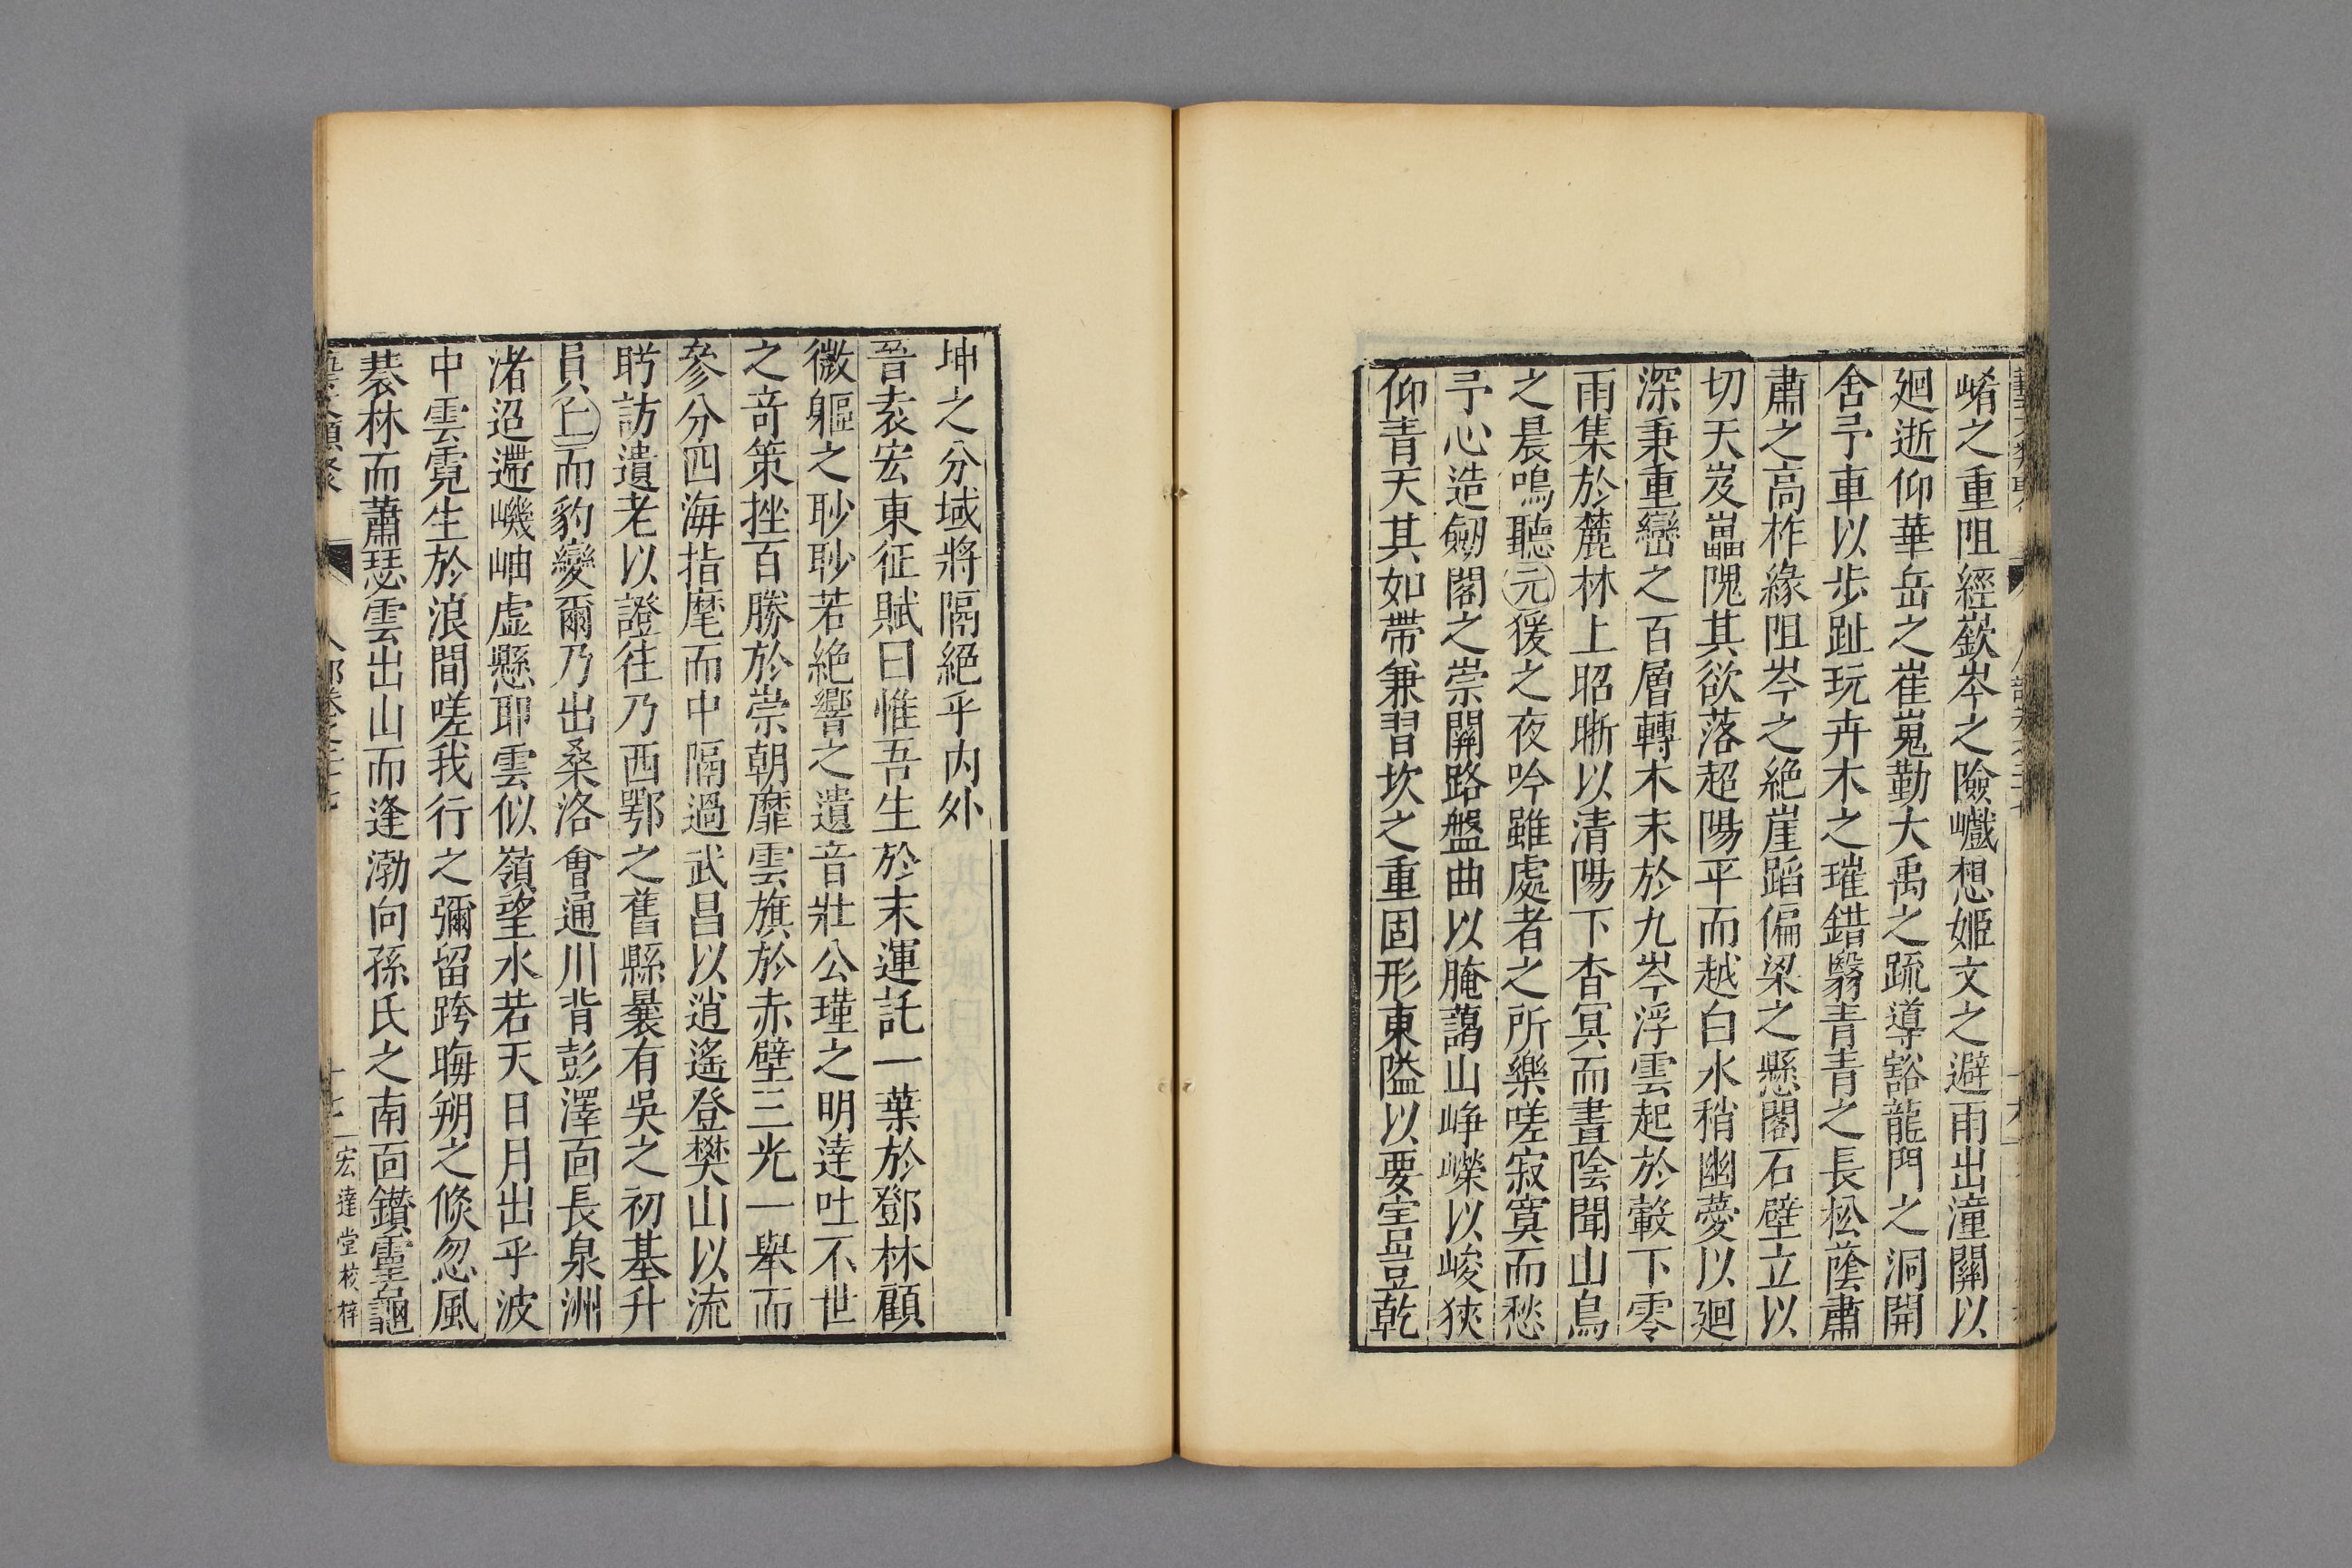 崤之重阻經嶔岑之險巇想姬文之避雨出潼關以
廻逝仰華岳之崔嵬勤大禹之疏導豁龍門之洞開
舍予車以步趾玩卉木之璀錯翳青青之長松蔭肅
肅之高柞緣阻岑之絕崖蹈偏梁之懸閣石壁立以
切天岌礨隗其欲落超陽平而越白水稍幽薆以廻
深秉重巒之百層轉木末於九岑浮雲起於轂下零
雨集於麓林上昭晣以清陽下杳冥而晝陰聞山鳥
之晨鳴聽元猨之夜吟雖處者之所樂嗟寂寞而愁
予心造劒閣之崇關路盤曲以腌藹山崢嶸以峻狹
仰青天其如帶兼習坎之重固形東隘以要害豈乾
坤之分域將隔絕乎内外
晉袁宏東征賦曰惟吾生於末運託一葉於鄧林顧
微軀之眇眇若絕響之遺音壯公瑾之明達吐不世
之奇策挫百勝於崇朝靡雲旗於赤壁三光一舉而
參分四海指麾而中隔過武昌以逍遙登樊山以流
眄訪遺老以證往乃西鄂之舊縣曩有吳之初基升
員丄而豹變爾乃出桑洛會通川背彭澤面長泉洲
渚迢遰巇岫虛懸卽雲似嶺望水若天日月出乎波
中雲霓生於浪間嗟我行之彌留跨晦朔之倐忽風
褰林而蕭瑟雲出山而逢渤向孫氏之南面鑽靈龜
宏達堂校梓